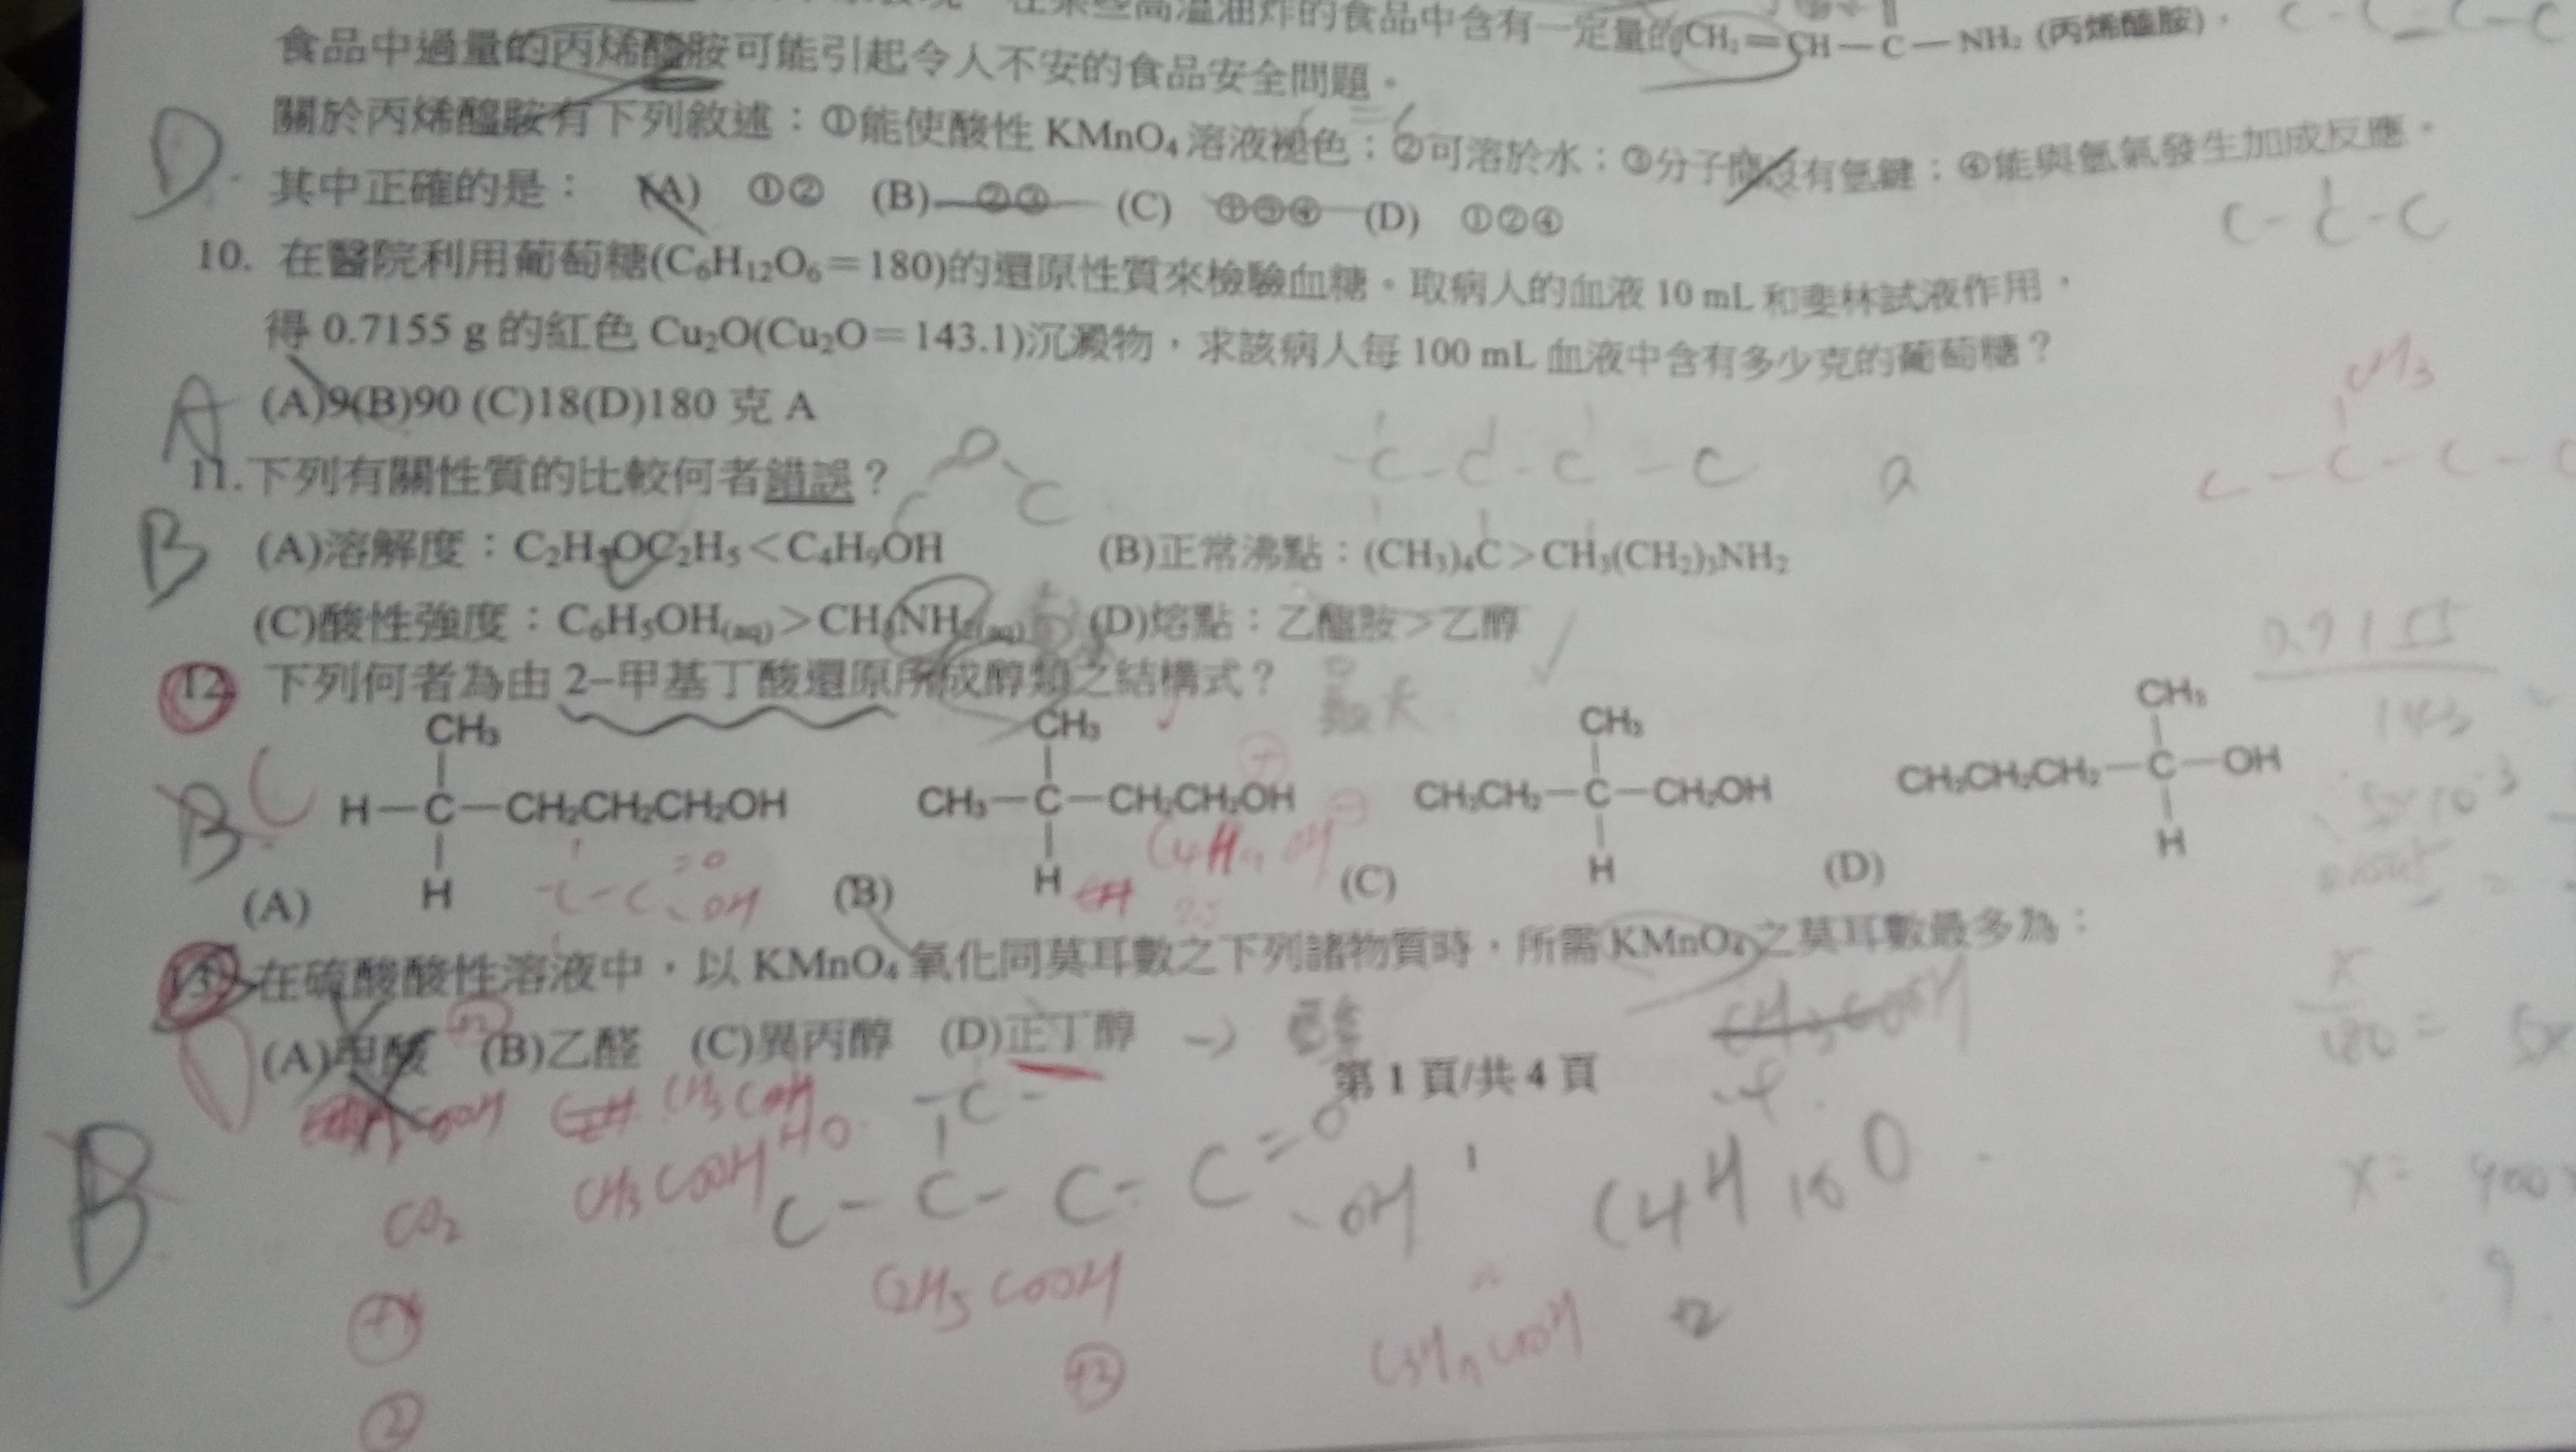 在某些高溫油炸的食品中含有一定量的CH₂=CH—C—NH₂ (丙烯醯胺)，
食品中過量的丙烯醯胺可能引起令人不安的食品安全問題。
關於丙烯醯胺有下列敘述：①能使酸性 KMnO₄ 溶液褪色；②可溶於水；③分子間沒有氫鍵；④能與氫氣發生加成反應。
其中正確的是： (A) ①② (B) ②③ (C) ①③④ (D) ①②④
D
C-C-C
10. 在醫院利用葡萄糖(C₆H₁₂O₆＝180)的還原性質來檢驗血糖。取病人的血液 10 mL 和斐林試液作用，
得 0.7155 g 的紅色 Cu₂O(Cu₂O＝143.1)沉澱物，求該病人每 100 mL 血液中含有多少克的葡萄糖？
(A)9(B)90 (C)18(D)180 克 A
A
CH3
C-C-C-C
11.下列有關性質的比較何者錯誤？
B
(A)溶解度：C₂H₅OC₂H₅＜C₄H₉OH (B)正常沸點：(CH₃)₄C＞CH₃(CH₂)₃NH₂
(C)酸性強度：C₆H₅OH(aq)＞CH₃NH₂(aq) (D)熔點：乙醯胺＞乙醇
12. 下列何者為由 2−甲基丁酸還原所成醇類之結構式？
CH₃ CH₃ CH₃ CH₃
H—C—CH₂CH₂CH₂OH CH₃—C—CH₂CH₂OH CH₃CH₂—C—CH₂OH CH₃CH₂CH₂—C—OH
H H H H
(A) (B) (C) (D)
B C
=O
-C-C-OH
C4H9OH
13. 在硫酸酸性溶液中，以 KMnO₄ 氧化同莫耳數之下列諸物質時，所需 KMnO₄ 之莫耳數最多為：
(A)甲酸 (B)乙醛 (C)異丙醇 (D)正丁醇 → 酸
第 1 頁/共 4 頁
B
COOH
CH3COH
CH3COOH
CO2
C-C-C-C=O
-OH
C4H10O
C2H5COOH
C3H7COOH
+2
+3
2